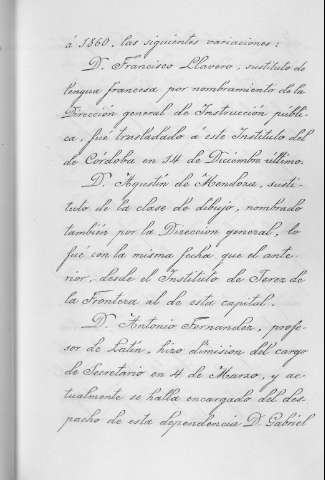 á 1860, las siguientes variaciones:
D. Francisco Llavero, sustituto de
lengua francesa por nombramiento de la
Dirección general de Instrucción públi-
ca, fué trasladado á este Instituto del
de Córdoba en 14 de Diciembre último.
D. Agustín de Mendoza, susti-
tuto de la clase de dibujo, nombrado
también por la Dirección general, lo
fué con la misma fecha que el ante-
rior, desde el Instituto de Jerez de
la Frontera al de esta capital.
D. Antonio Fernandez, profe-
sor de Latín, hizo dimisión del cargo
de Secretario en 4 de Marzo, y ac-
tualmente se halla encargado del des-
pacho de esta dependencia D. Gabriel